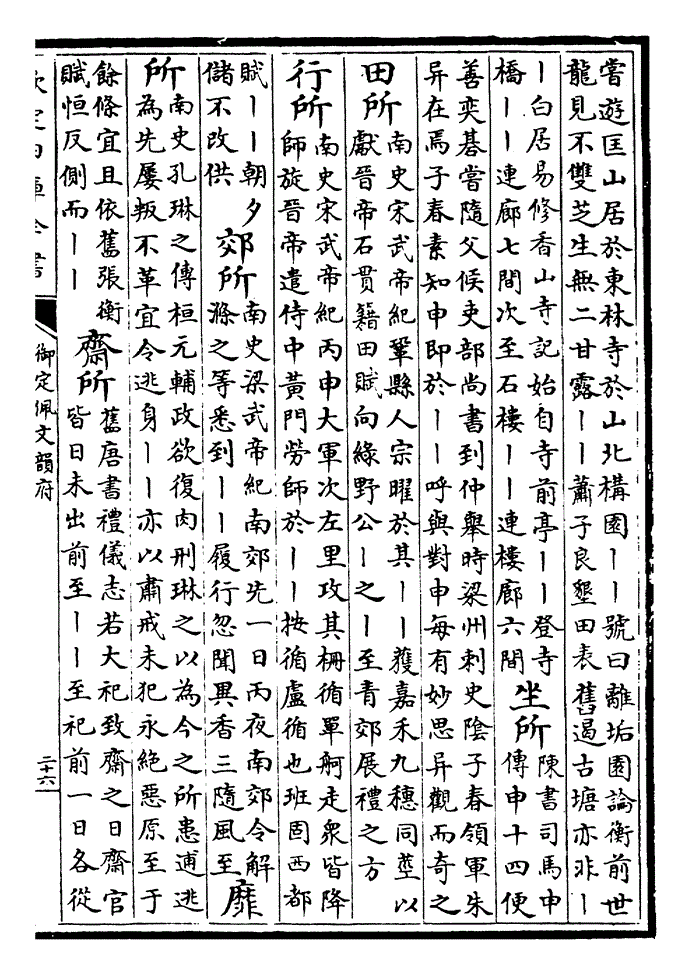 嘗遊匡山居於東林寺於山北構園丨丨號曰離垢園論衡前世
龍見不雙芝生無二甘露丨丨蕭子良墾田表舊遏古塘亦非丨
丨白居易修香山寺記始自寺前亭丨丨登寺
橋丨丨連廊七間次至石樓丨丨連樓廊六間
坐所
陳書司馬申
傳申十四便
善奕碁嘗隨父候吏部尚書到仲舉時梁州刺史陰子春領軍朱
异在焉子春素知申即於丨丨呼與對申每有妙思异觀而奇之
田所
南史宋武帝紀鞏縣人宗曜於其丨丨獲嘉禾九穗同莖以
獻晉帝石貫籍田賦向綠野公丨之丨至青郊展禮之方
行所
南史宋武帝紀丙申大軍次左里攻其柵循單舸走衆皆降
師旋晉帝遣侍中黃門勞師於丨丨按循盧循也班固西都
賦丨丨朝夕
儲不改供
郊所
南史梁武帝紀南郊先一日丙夜南郊令解
滌之等悉到丨丨履行忽聞異香三隨風至
靡
所
南史孔琳之傳桓元輔政欲復肉刑琳之以為今之所患逋逃
為先屢叛不革宜令逃身丨丨亦以肅戒未犯永絕惡原至于
餘條宜且依舊張衡
賦恒反側而丨丨
齋所
舊唐書禮儀志若大祀致齋之日齋官
皆日未出前至丨丨至祀前一日各從
欽定四庫全書
御定佩文韻府
二十六